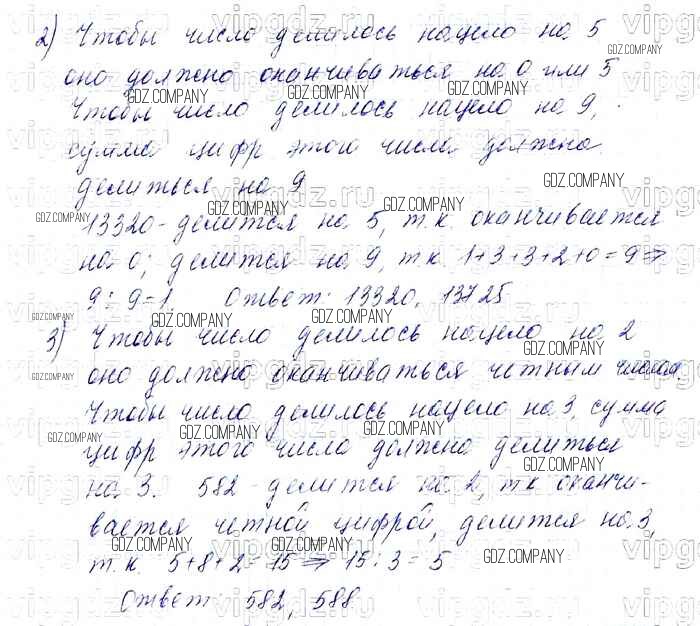 2) Чтобы число делилось нацело на 5
оно должно оканчиваться на 0 или 5
Чтобы число делилось нацело на 9,
сумма цифр этого числа должна
делиться на 9
13320 - делится на 5, т.к. оканчивается
на 0; делится на 9, т.к. 1+3+3+2+0=9 ⇒
9 : 9 = 1. Ответ: 13320, 13725
3) Чтобы число делилось нацело на 2
оно должно оканчиваться четным числом
Чтобы число делилось нацело на 3, сумма
цифр этого числа должна делиться
на 3. 582 - делится на 2, т.к. оканчи-
вается четной цифрой, делится на 3,
т.к. 5+8+2=15 ⇒ 15 : 3 = 5
Ответ: 582, 588